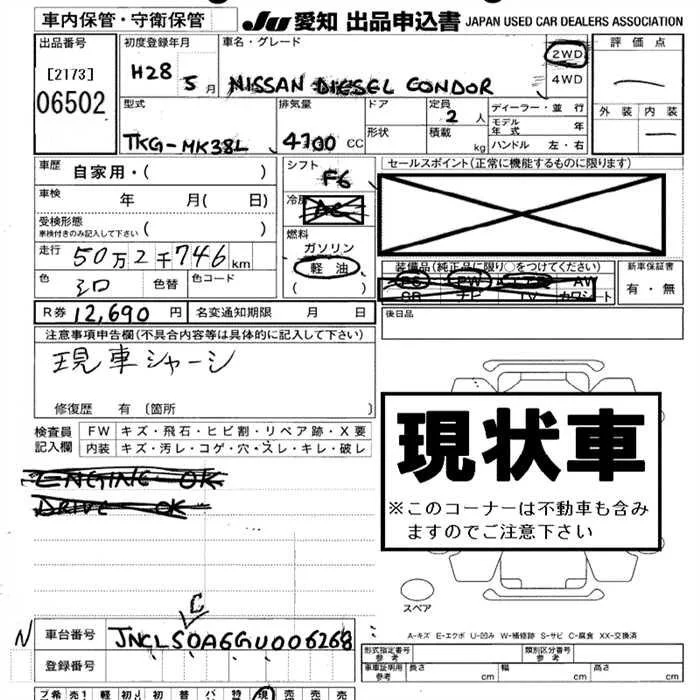 車内保管・守衛保管 JU 愛知 出品申込書 JAPAN USED CAR DEALERS ASSOCIATION
出品番号
[2173]
06502
初度登録年月
H28 5月
車名・グレード
NISSAN DIESEL CONDOR
2WD
4WD
評価点
外装 内装
型式
TKG-MK38L
排気量
4700 CC
ドア
形状
定員
2 人
積載
kg
ディーラー・並行
モデル年式 年
ハンドル 左・右
車歴 自家用・( )
車検 年 月( 日)
受検形態
車検付きのみ記入して下さい ( )
走行 50万2千746km
色 シロ 色替 色コード
R券 12,690円 名変通知期限 月 日
シフト
F6
冷房
AC
燃料
ガソリン
軽油
( )
セールスポイント(正常に機能するものに限ります)
装備品(純正品に限り○をつけてください)
PS PW エアB AW
SR ナビ TV カワシート
新車保証書
有・無
後日品
注意事項申告欄(不具合内容等は具体的に記入して下さい)
現車シャーシ
修復歴 有 〔箇所 〕
検査員記入欄
FW キズ・飛石・ヒビ割・リペア跡・X要
内装 キズ・汚レ・コゲ・穴・スレ・キレ・破レ
ENGINE OK
DRIVE OK
現状車
※このコーナーは不動車も含み
ますのでご注意下さい
スペア
C
N 車台番号 JNCLS0A6GU006268
登録番号
A-キズ E-エクボ U-凹み W-補修跡 S-サビ C-腐食 XX-交換済
形式指定番号 参考
類別区分番号 参考
車証証明用 参考 長さ cm 幅 cm 高さ cm